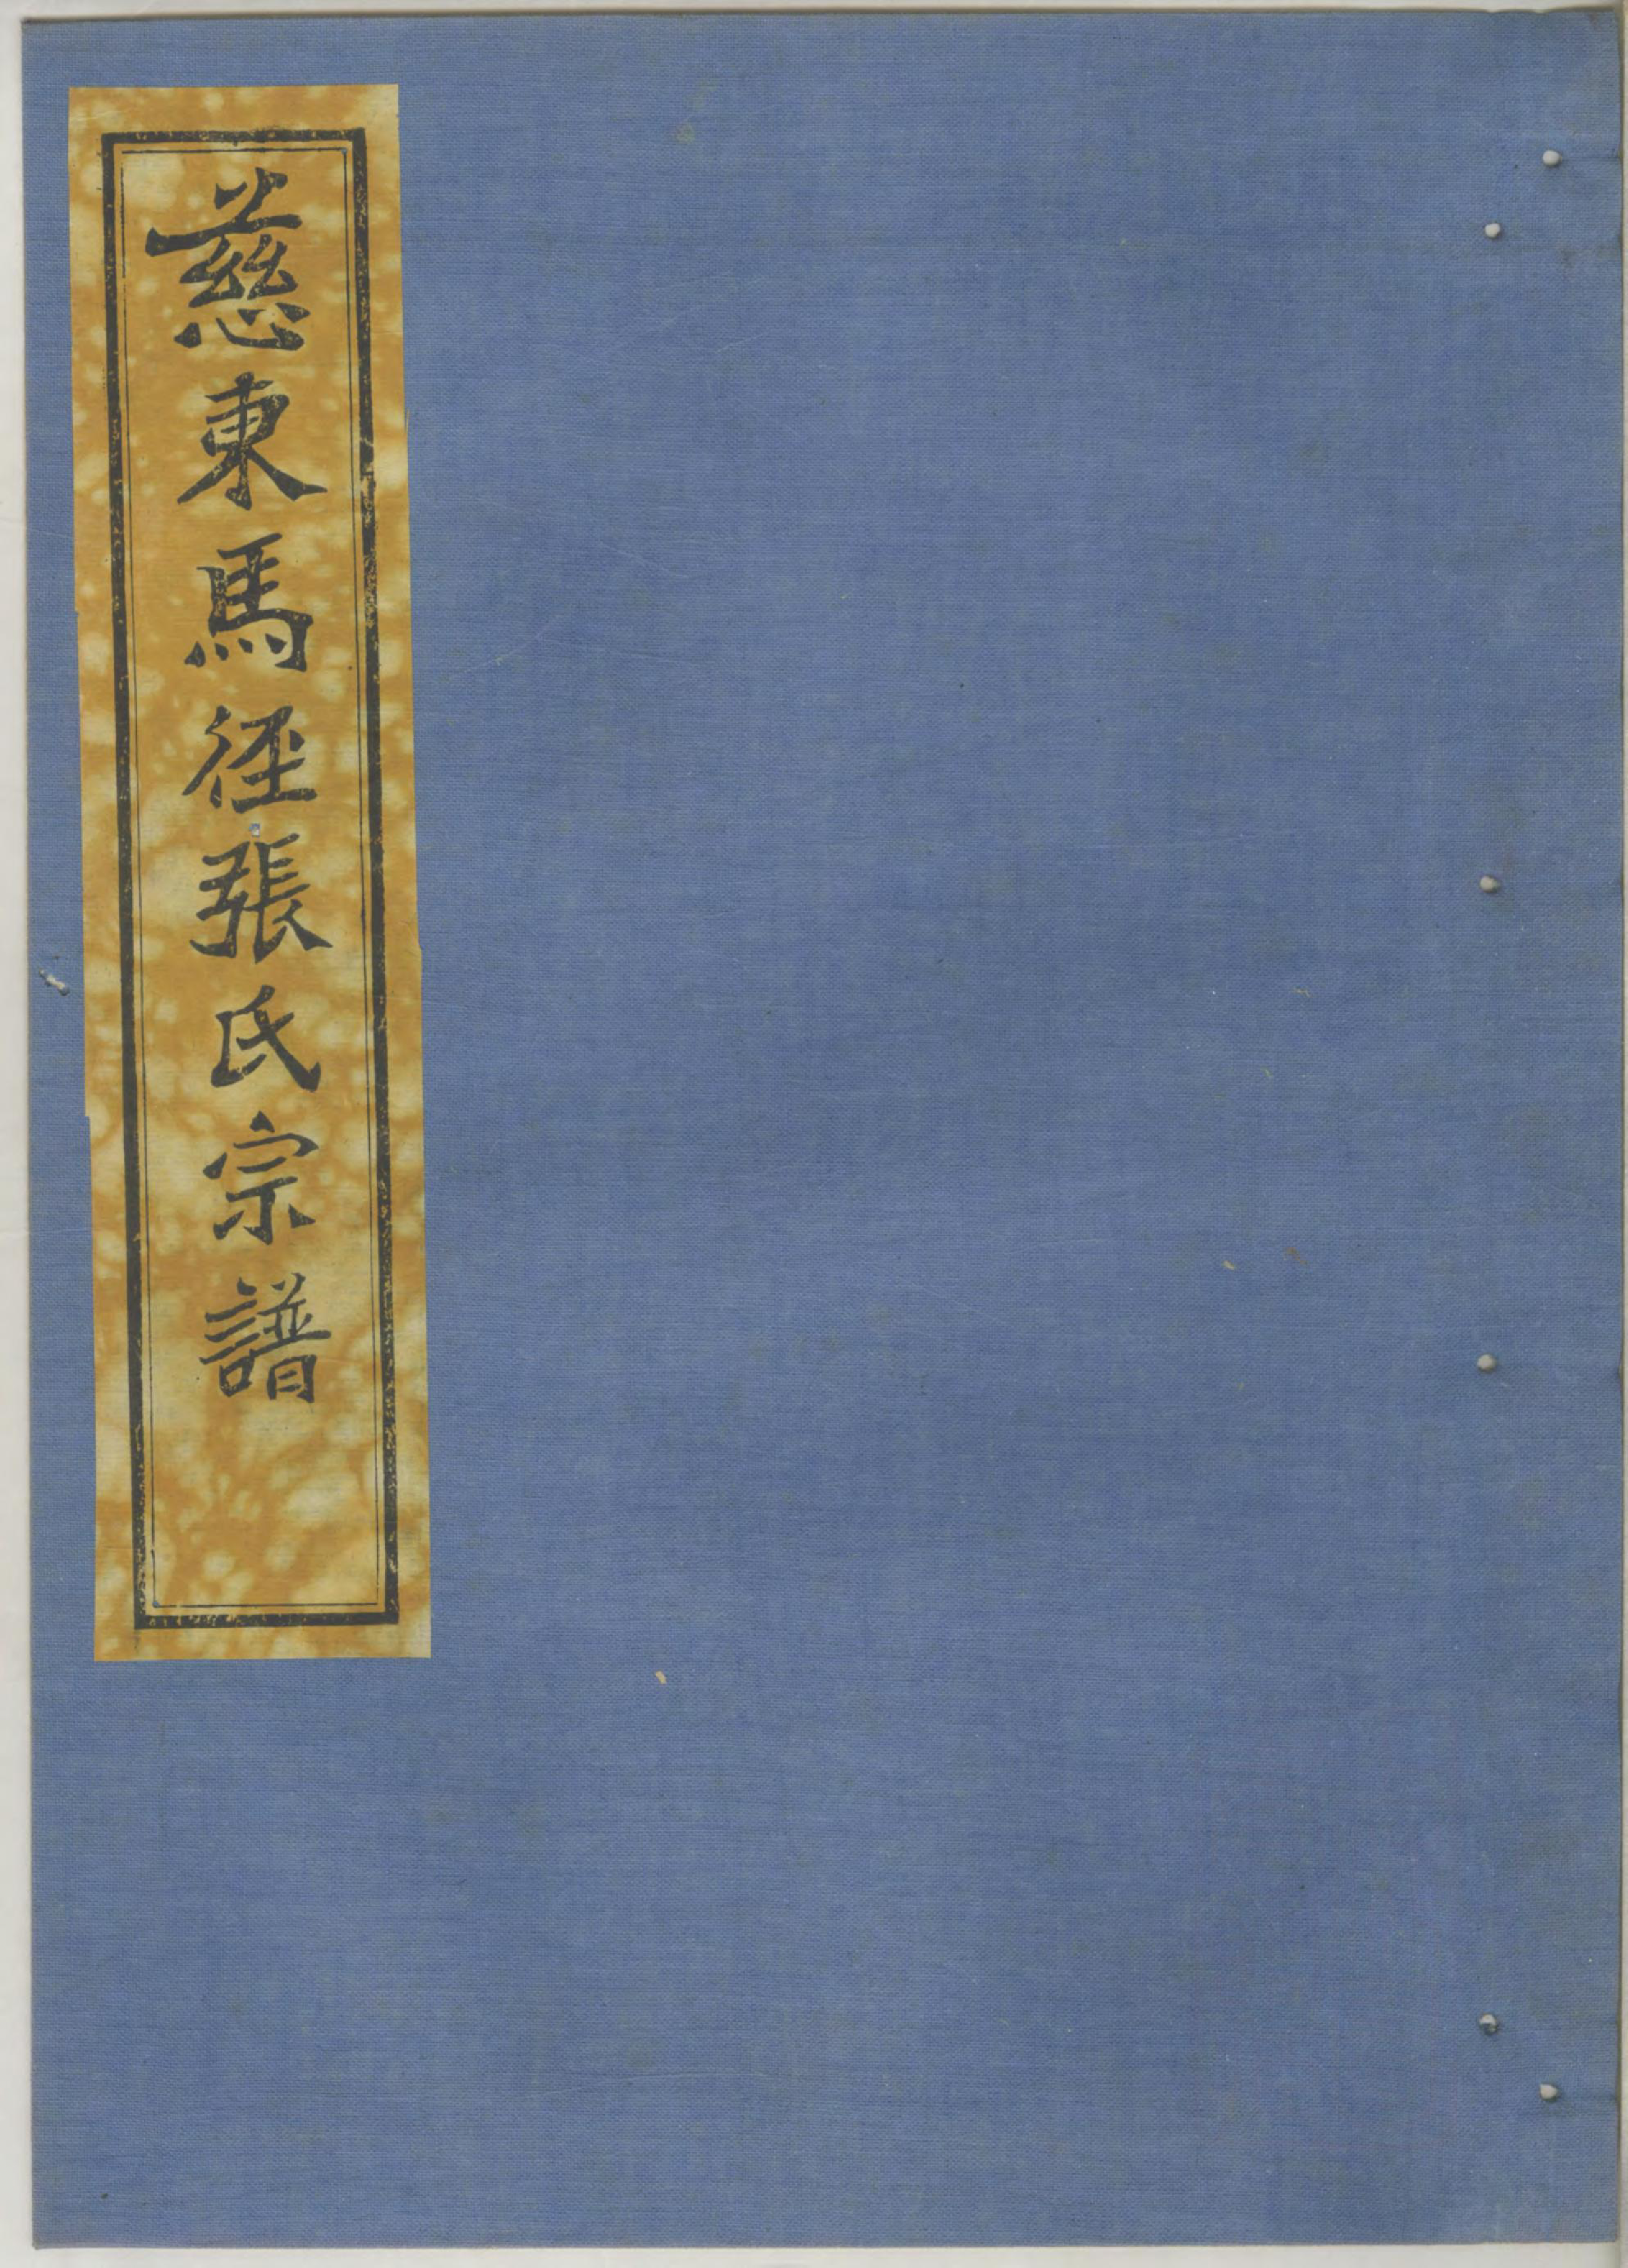 慈東馬徑張氏宗譜